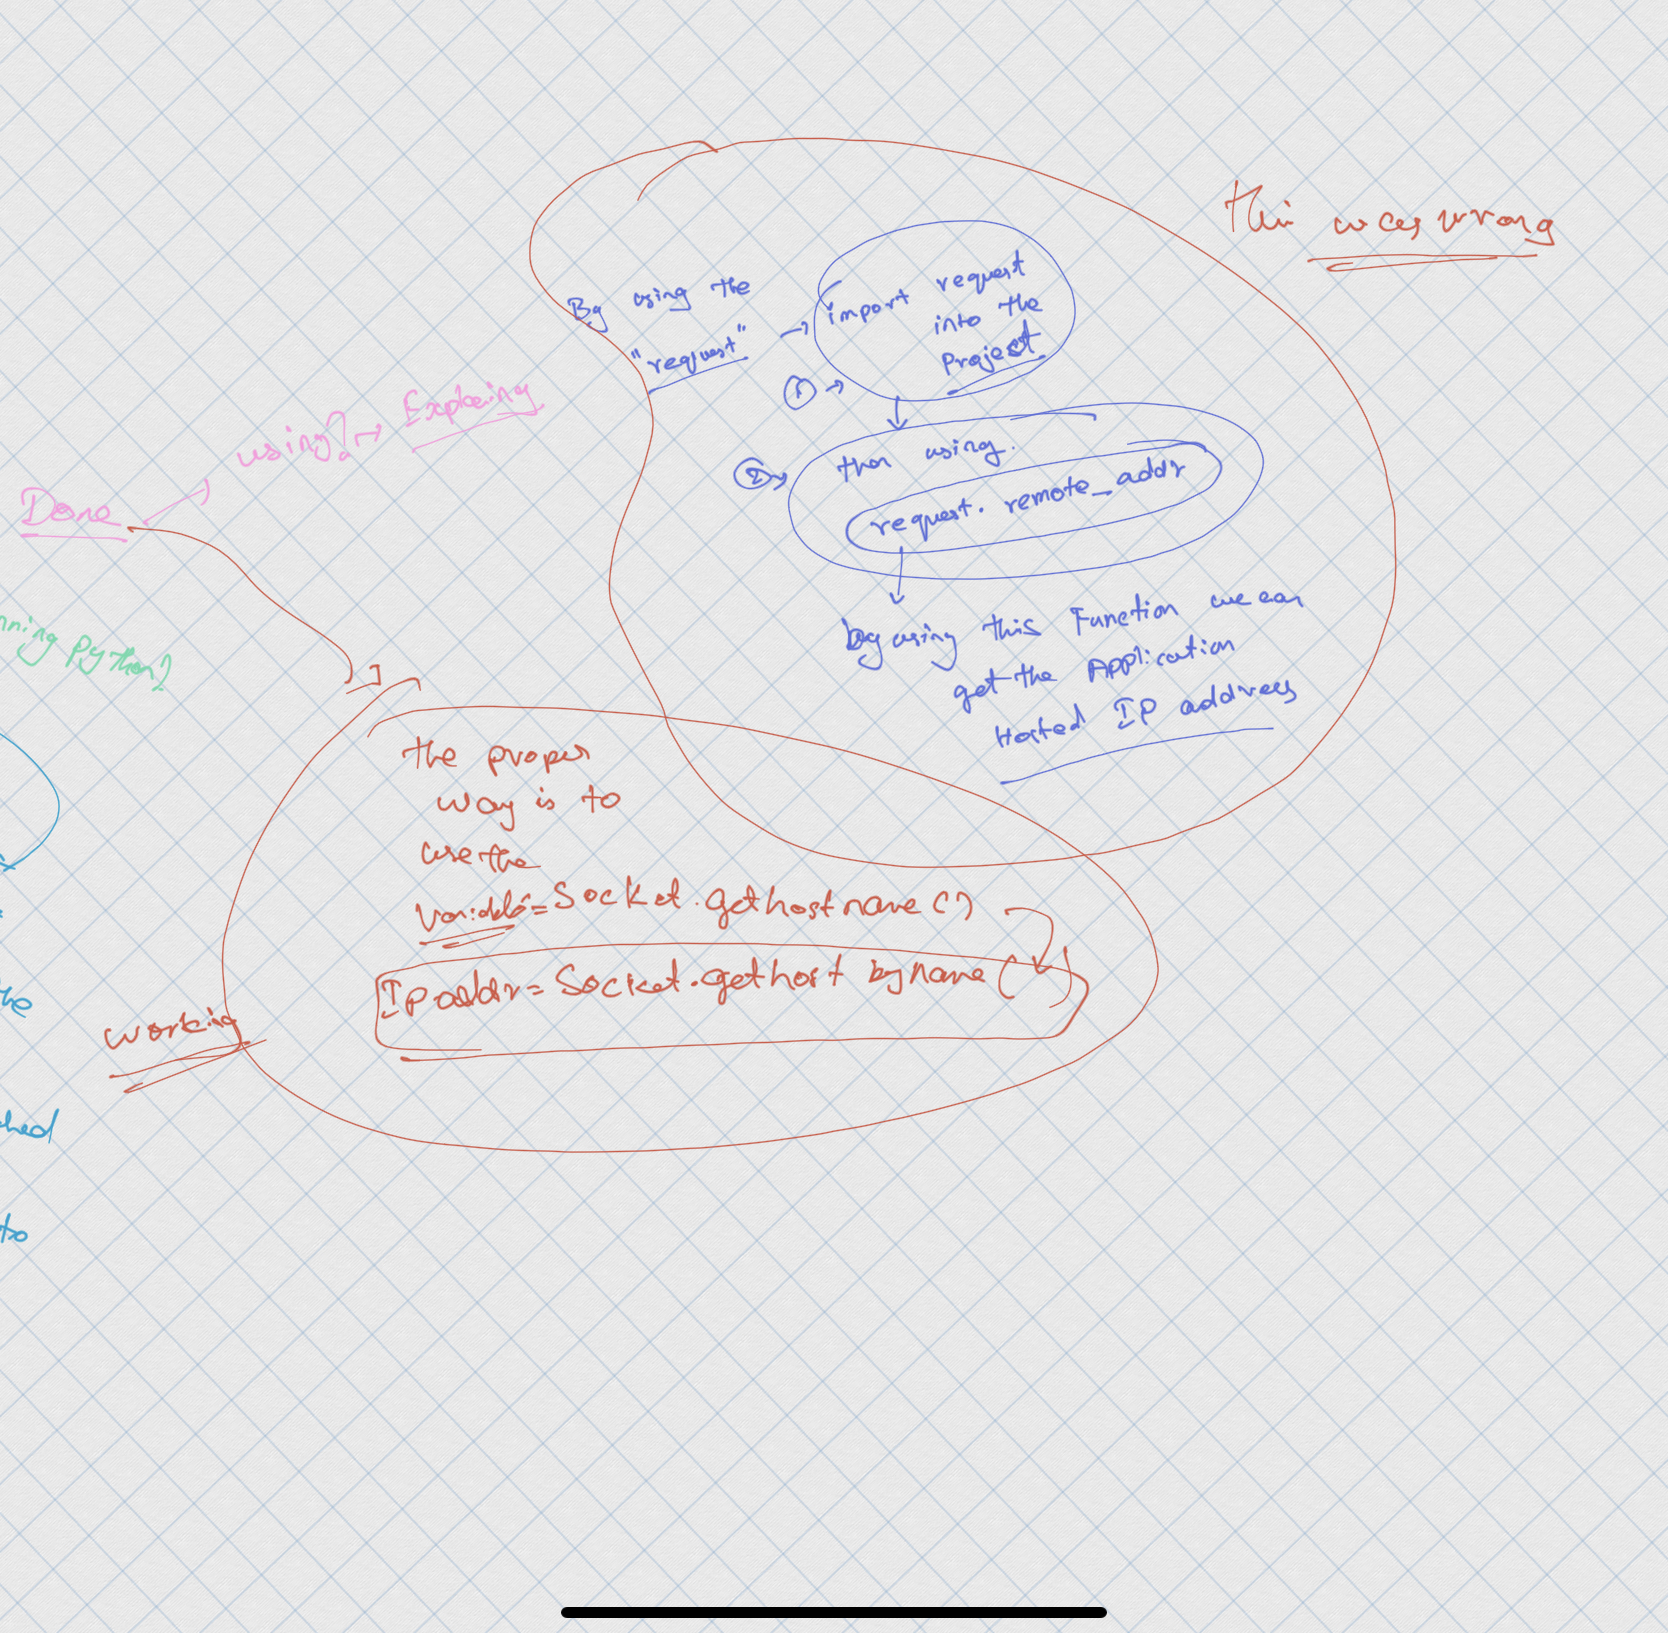 this was wrong
By using the
"request"
→ import request
into the
Project
① →
② →
then using.
request. remote_addr
by using this Function we can
get the Application
Hosted IP address
using? → Exploring
Done
nning Python?
the proper
way is to
use the
Variable = Socket.gethostname()
IPaddr = Socket.gethost byname ( )
working
he
hed
to